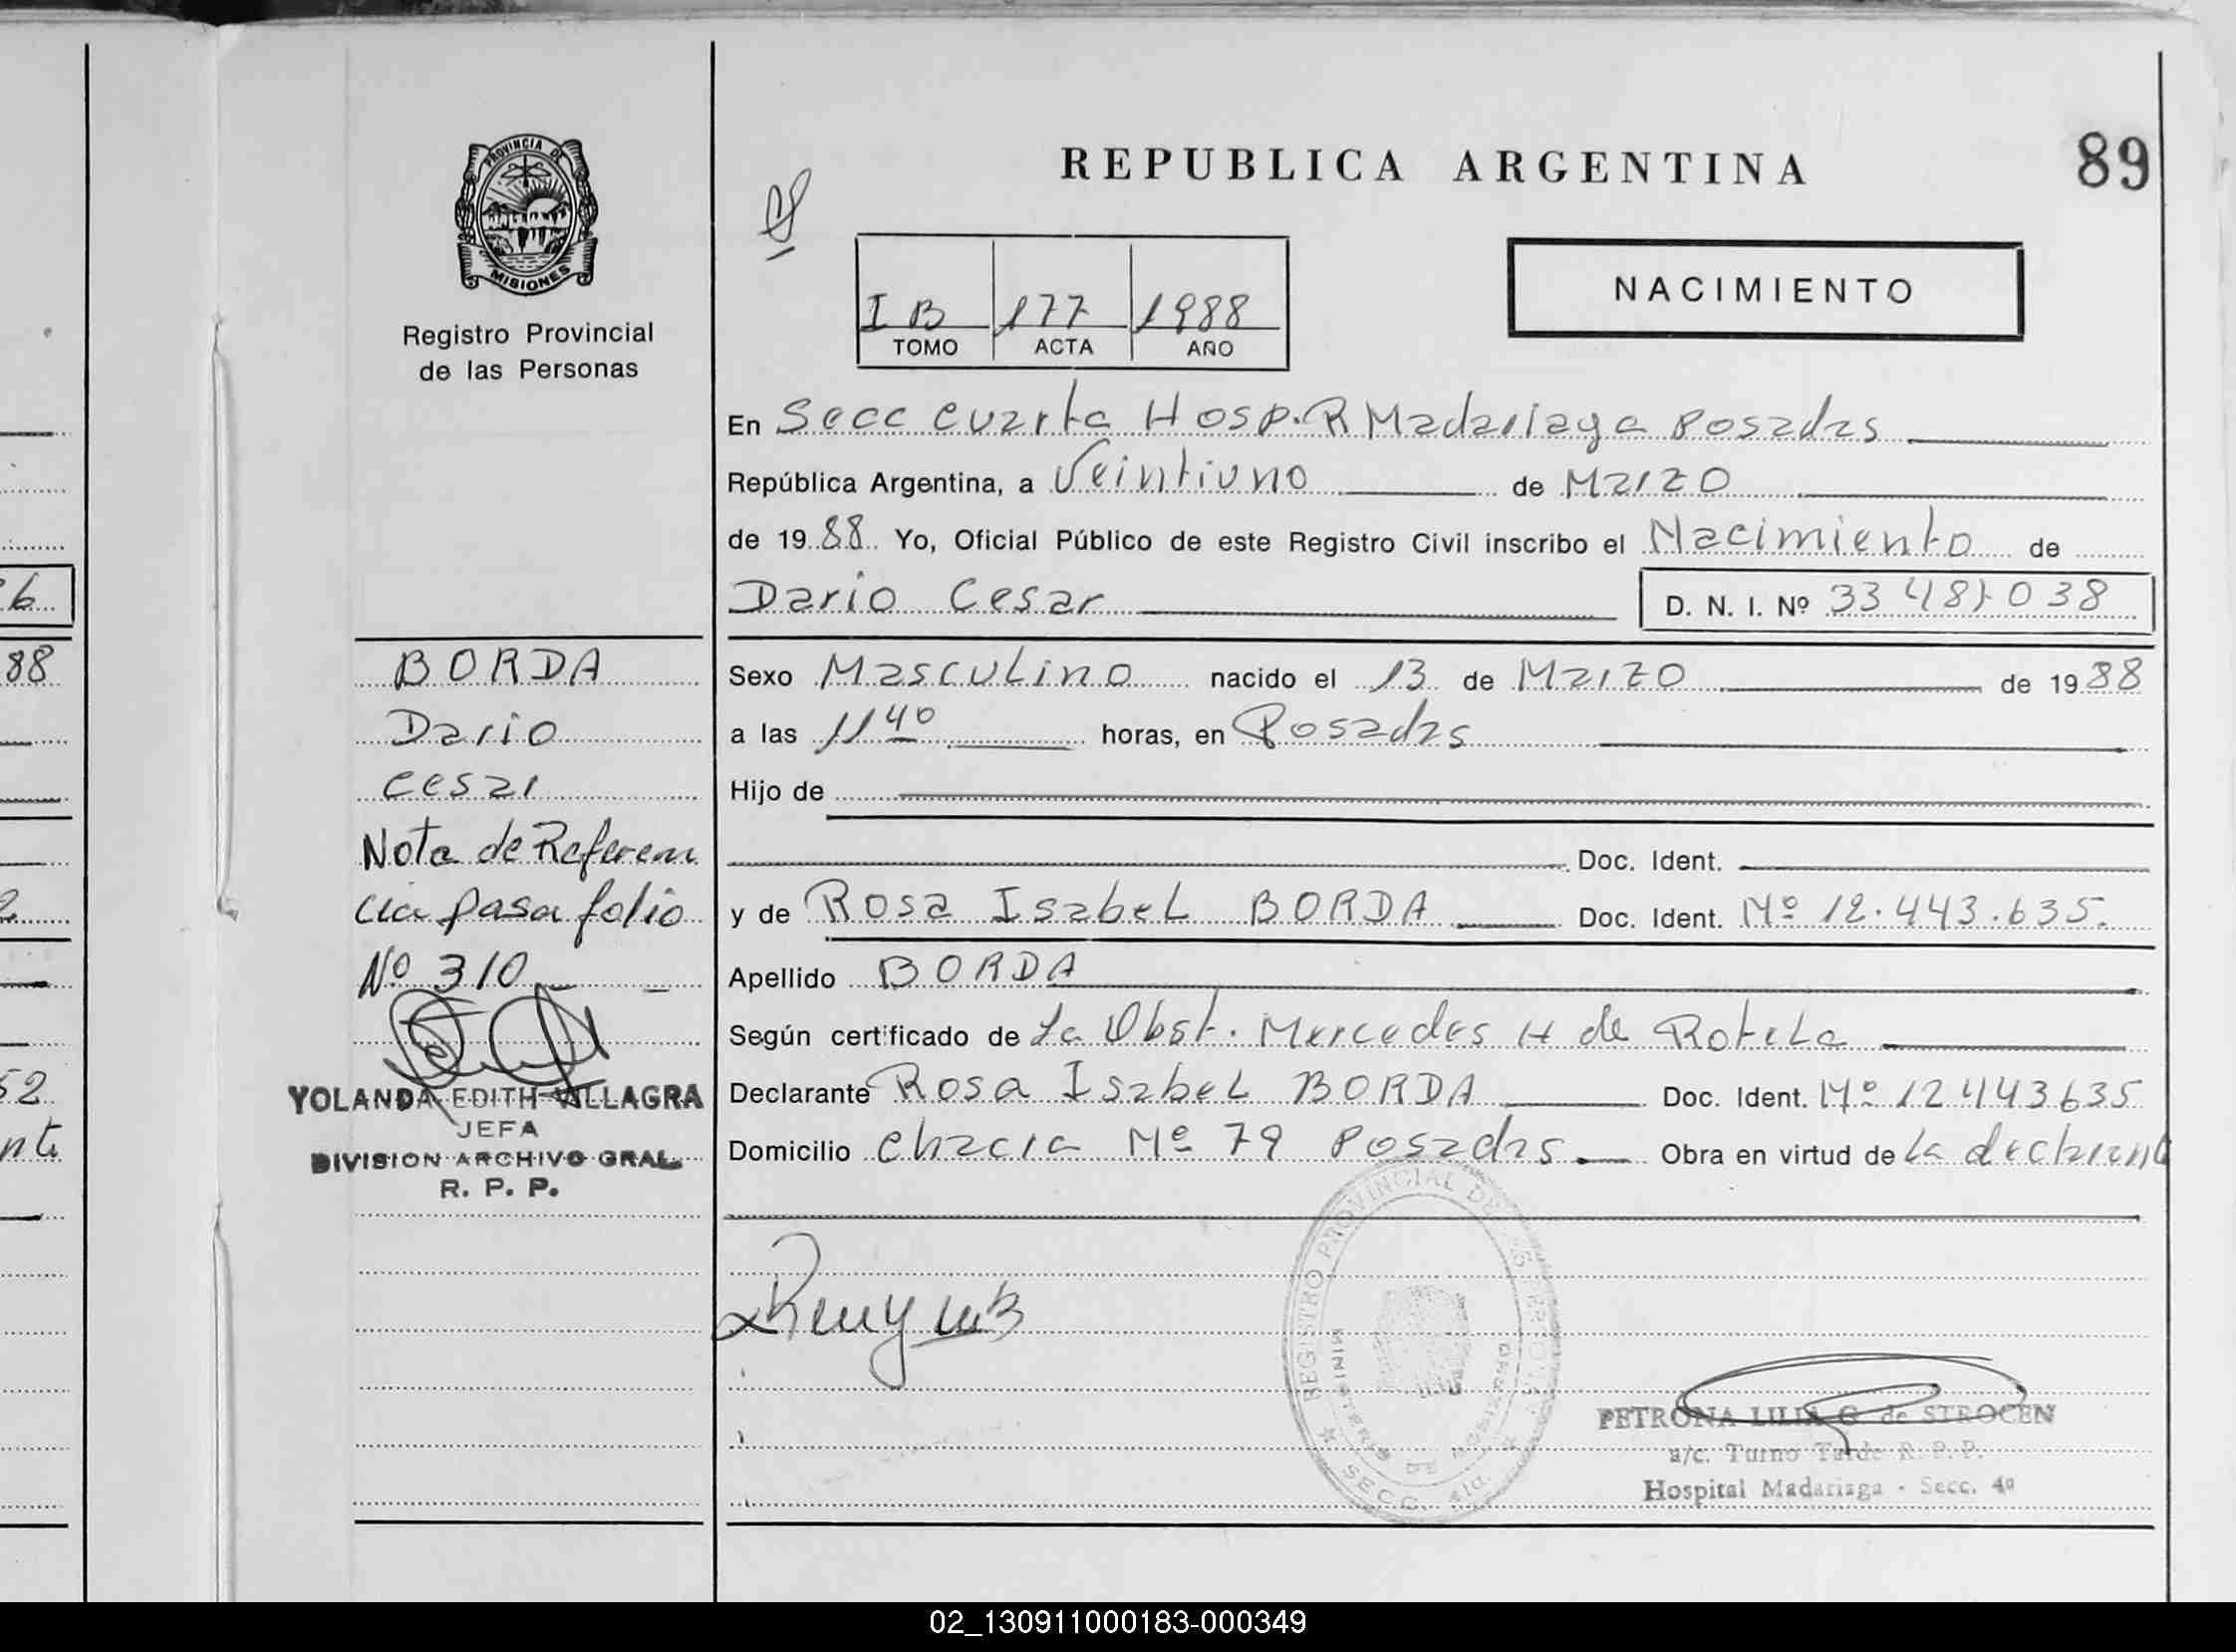 26
88
2
52
nte
PROVINCIA DE
MISIONES
Registro Provincial
de las Personas
BORDA
Dario
Cesar
Nota de Referen
cia pasa folio
Nº 310
YOLANDA EDITH VILLAGRA
JEFA
DIVISION ARCHIVO GRAL.
R. P. P.
REPUBLICA ARGENTINA
89
I B 177 1988
TOMO ACTA AÑO
NACIMIENTO
En Secc cuarta Hosp. R Madariaga Posadas
República Argentina, a Veintiuno de Marzo
de 1988 Yo, Oficial Público de este Registro Civil inscribo el Nacimiento de
Dario Cesar D. N. I. Nº
Sexo Masculino nacido el 13 de Marzo de 1988
a las 11 40 horas, en Posadas
Hijo de
Doc. Ident.
y de Rosa Isabel BORDA Doc. Ident. Nº 12.443.635.
Apellido BORDA
Según certificado de La Obst. Mercedes H de Rotela
Declarante Rosa Isabel BORDA Doc. Ident. Nº 12443635
Domicilio Chacra Nº 79 Posadas. Obra en virtud de La declarante
REGISTRO PROVINCIAL DE LAS PERSONAS
MINISTERIO DE
SECC. 4ta.
PETRONA LILIA G. de STROCEN
a/c. Turno Tarde R. P. P.
Hospital Madariaga - Secc. 4ª
02_130911000183-000349